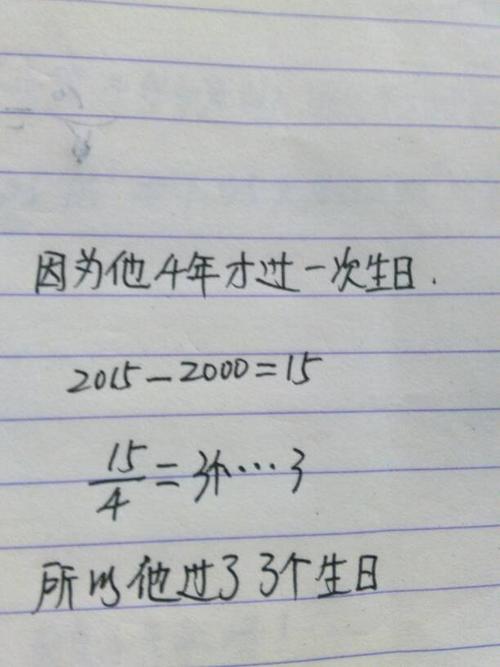 因为他4年才过一次生日.
2015-2000=15
15/4=3个…3
所以他过了3个生日